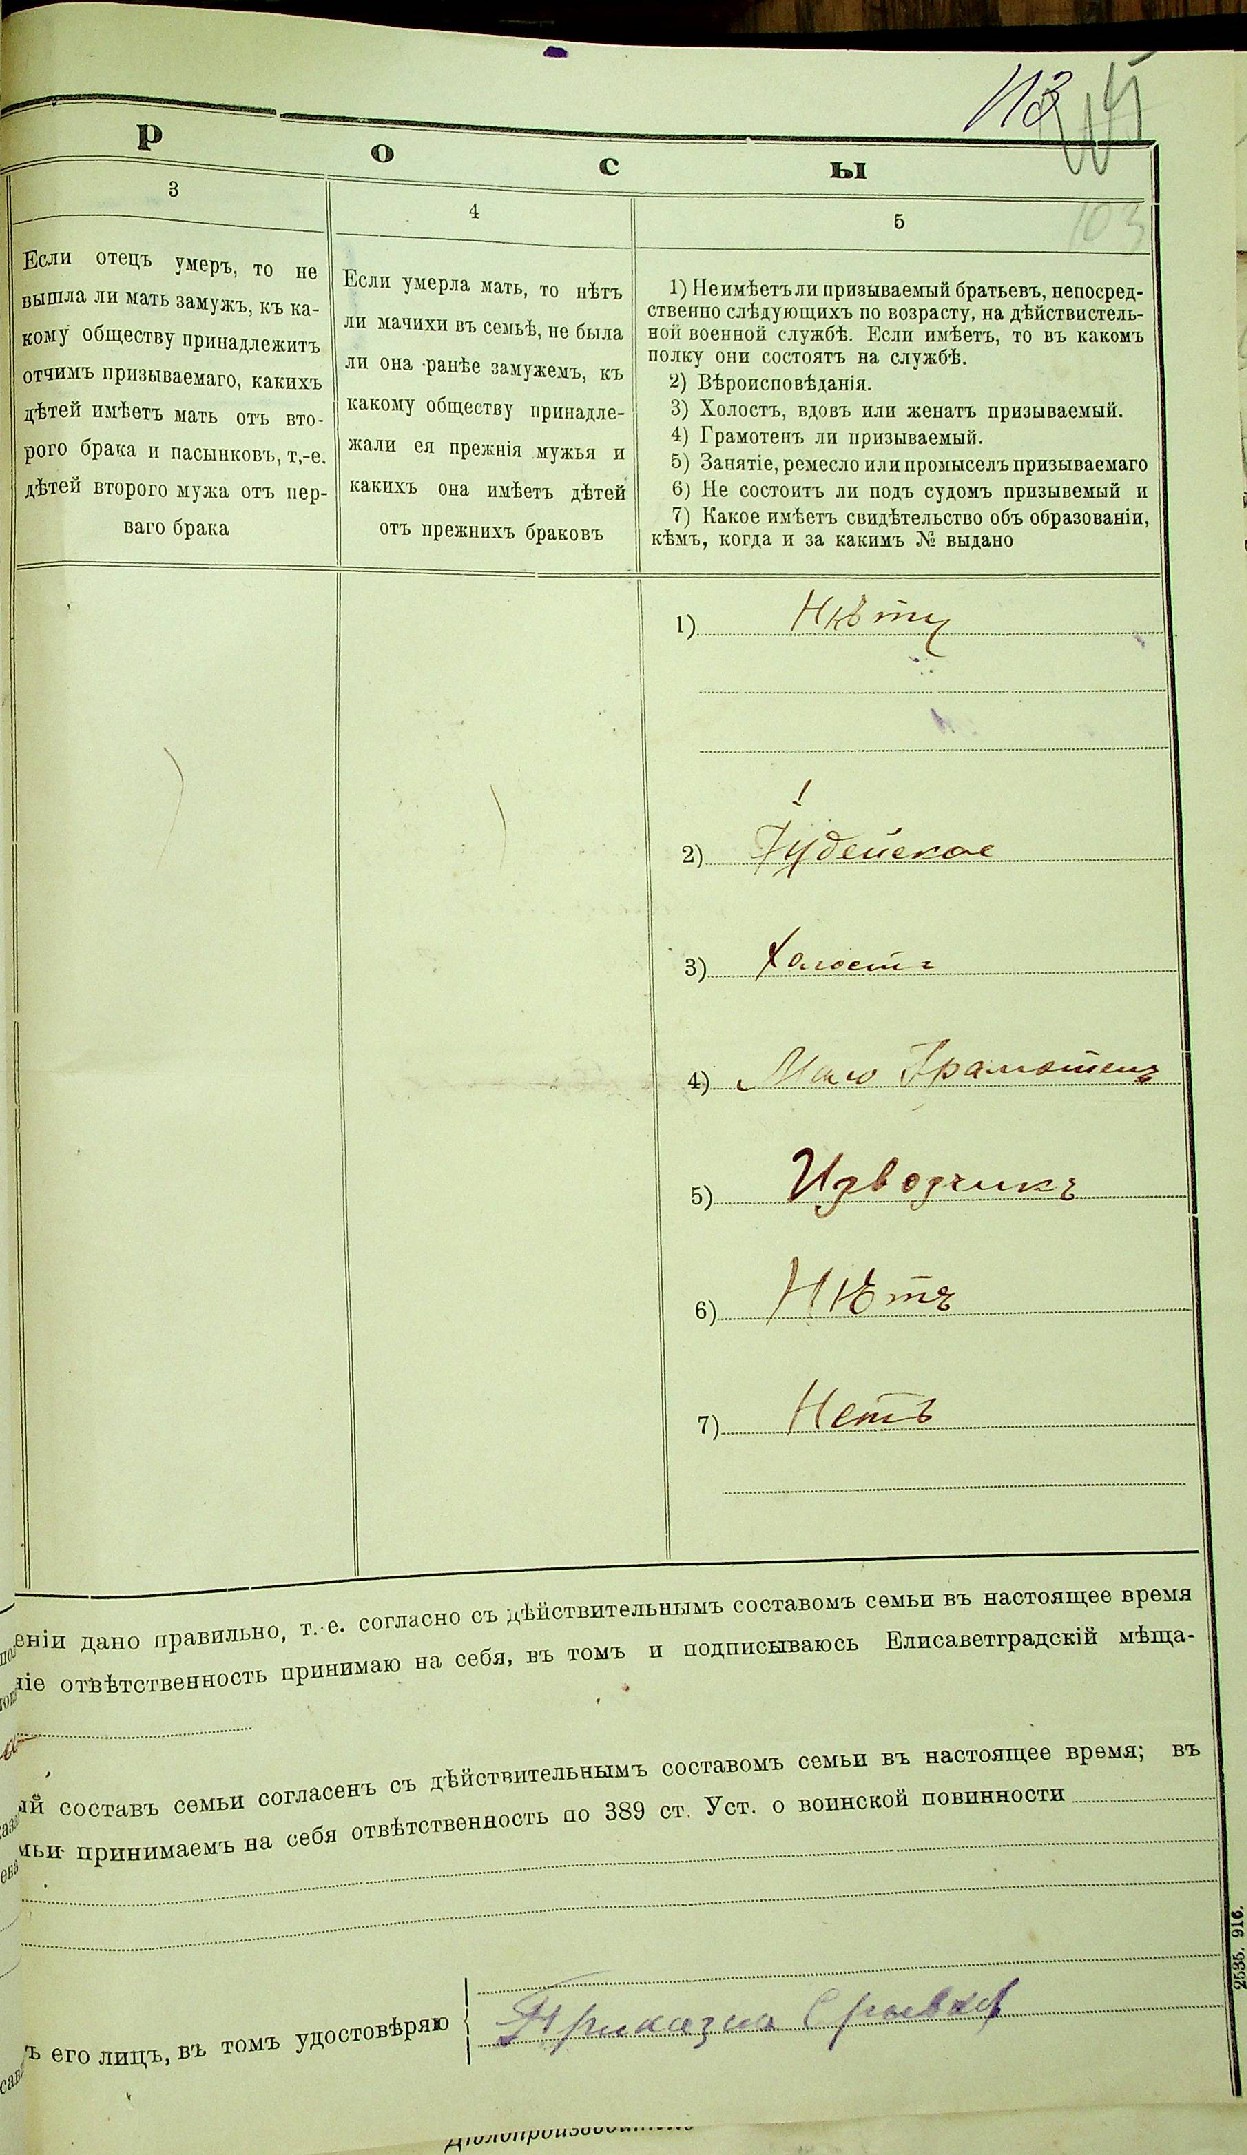 113
103
р о с ы
3
4
5
Если отецъ умеръ, то не
вышла ли мать замужъ, къ ка-
кому обществу принадлежитъ
отчимъ призываемаго, какихъ
дѣтей имѣетъ мать отъ вто-
рого брака и пасынковъ, т,-е.
дѣтей второго мужа отъ пер-
ваго брака
Если умерла мать, то нѣтъ
ли мачихи въ семьѣ, не была
ли она ранѣе замужемъ, къ
какому обществу принадле-
жали ея прежнія мужья и
какихъ она имѣетъ дѣтей
отъ прежнихъ браковъ
1) Неимѣетъ ли призываемый братьевъ, непосред-
ственно слѣдующихъ по возрасту, на дѣйствистель-
ной военной службѣ. Если имѣетъ, то въ какомъ
полку они состоятъ на службѣ.
2) Вѣроисповѣданія.
3) Холостъ, вдовъ или женатъ призываемый.
4) Грамотенъ ли призываемый.
5) Занятіе, ремесло или промыселъ призываемаго
6) Не состоитъ ли подъ судомъ призывемый и
7) Какое имѣетъ свидѣтельство объ образованіи,
кѣмъ, когда и за какимъ № выдано
1) Нѣтъ
2) Іудейское
3) Холостъ
4) Мало Грамотенъ
5) Изводчикъ
6) Нѣтъ
7) Нетъ
еніи дано правильно, т.-е. согласно съ дѣйствительнымъ составомъ семьи въ настоящее время
ніе отвѣтственность принимаю на себя, въ томъ и подписываюсь Елисаветградскій мѣща-
ый составъ семьи согласенъ съ дѣйствительнымъ составомъ семьи въ настоящее время; въ
мьи принимаемъ на себя отвѣтственность по 389 ст. Уст. о воинской повинности
ъ его лицъ, въ томъ удостовѣряю
2535. 916.
Дѣлопроизводитель